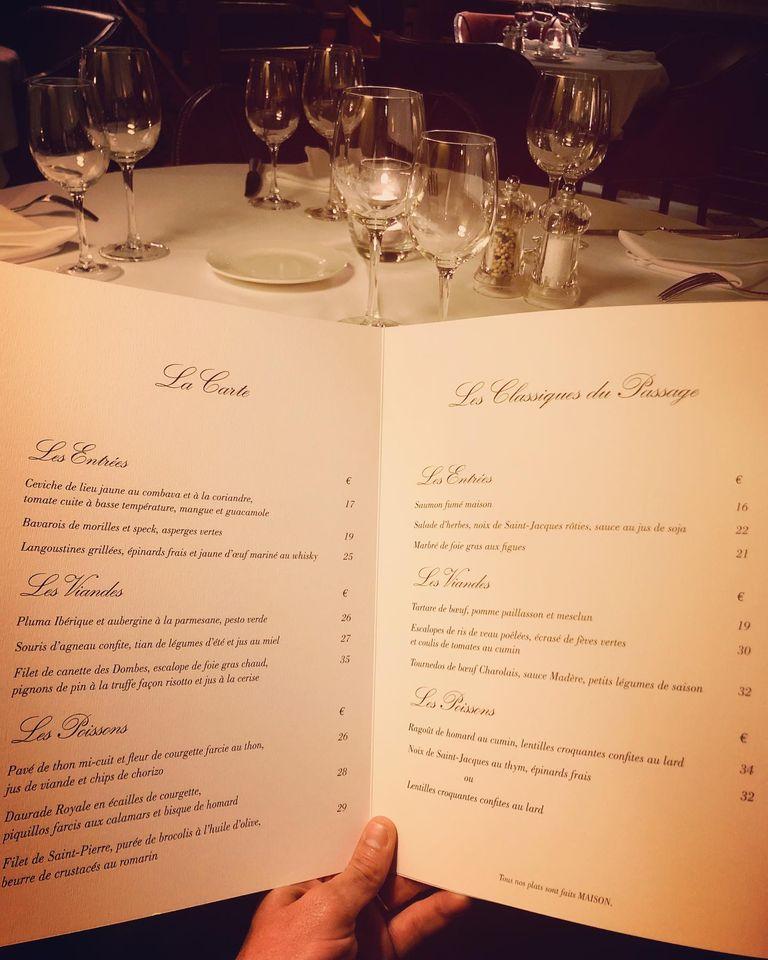 La Carte
Les Entrées
€
Ceviche de lieu jaune au combava et à la coriandre,
tomate cuite à basse température, mangue et guacamole 17
Bavarois de morilles et speck, asperges vertes 19
Langoustines grillées, épinards frais et jaune d'œuf mariné au whisky 25
Les Viandes
€
Pluma Ibérique et aubergine à la parmesane, pesto verde 26
Souris d'agneau confite, tian de légumes d'été et jus au miel 27
Filet de canette des Dombes, escalope de foie gras chaud, 35
pignons de pin à la truffe façon risotto et jus à la cerise
Les Poissons
€
Pavé de thon mi-cuit et fleur de courgette farcie au thon, 26
jus de viande et chips de chorizo
Daurade Royale en écailles de courgette, 28
piquillos farcis aux calamars et bisque de homard
Filet de Saint-Pierre, purée de brocolis à l'huile d'olive, 29
beurre de crustacés au romarin
Les Classiques du Passage
Les Entrées
€
Saumon fumé maison 16
Salade d'herbes, noix de Saint-Jacques rôties, sauce au jus de soja 22
Marbré de foie gras aux figues 21
Les Viandes
€
Tartare de bœuf, pomme paillasson et mesclun 19
Escalopes de ris de veau poêlées, écrasé de fèves vertes
et coulis de tomates au cumin 30
Tournedos de bœuf Charolais, sauce Madère, petits légumes de saison 32
Les Poissons
€
Ragoût de homard au cumin, lentilles croquantes confites au lard 34
Noix de Saint-Jacques au thym, épinards frais 32
ou
Lentilles croquantes confites au lard
Tous nos plats sont faits MAISON.